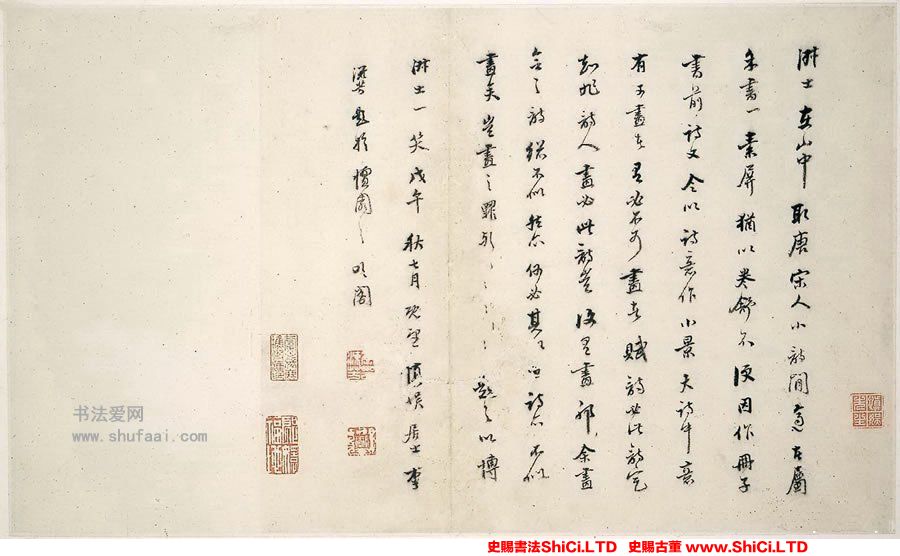 士在山中取唐宋人小詩閒適者屬
余書一素屏猶以卷舒不便因作冊子
書前詩又令以詩意作小景夫詩中意
有可畫者有必不可畫者賦詩必此詩定
知非詩人畫必此詩豈復有畫耶余畫
之詩總不似然亦何必其似詩亦不似
畫矣豈畫之罪歟題之以博
士一笑戊午秋七月既望慎娛居士李
流芳題於檀園之閣
书法爱网
www.shufaai.com
史賜書法ShiCi.LTD 史賜古董 www.ShiCi.LTD